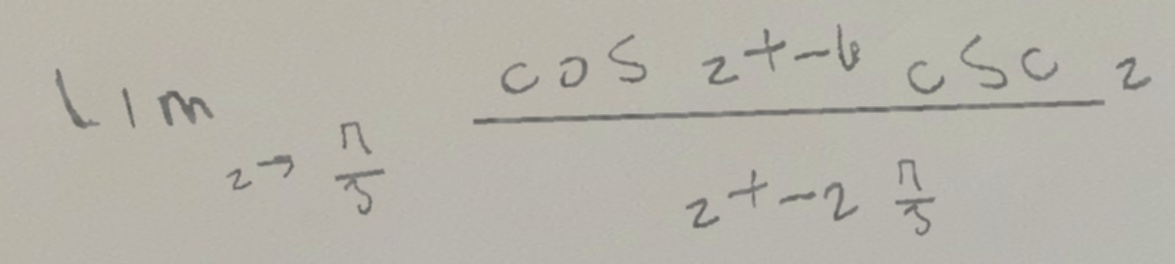 Lim z→ π/3 (cos z + - 6 csc z) / (z + - 2 π/3)